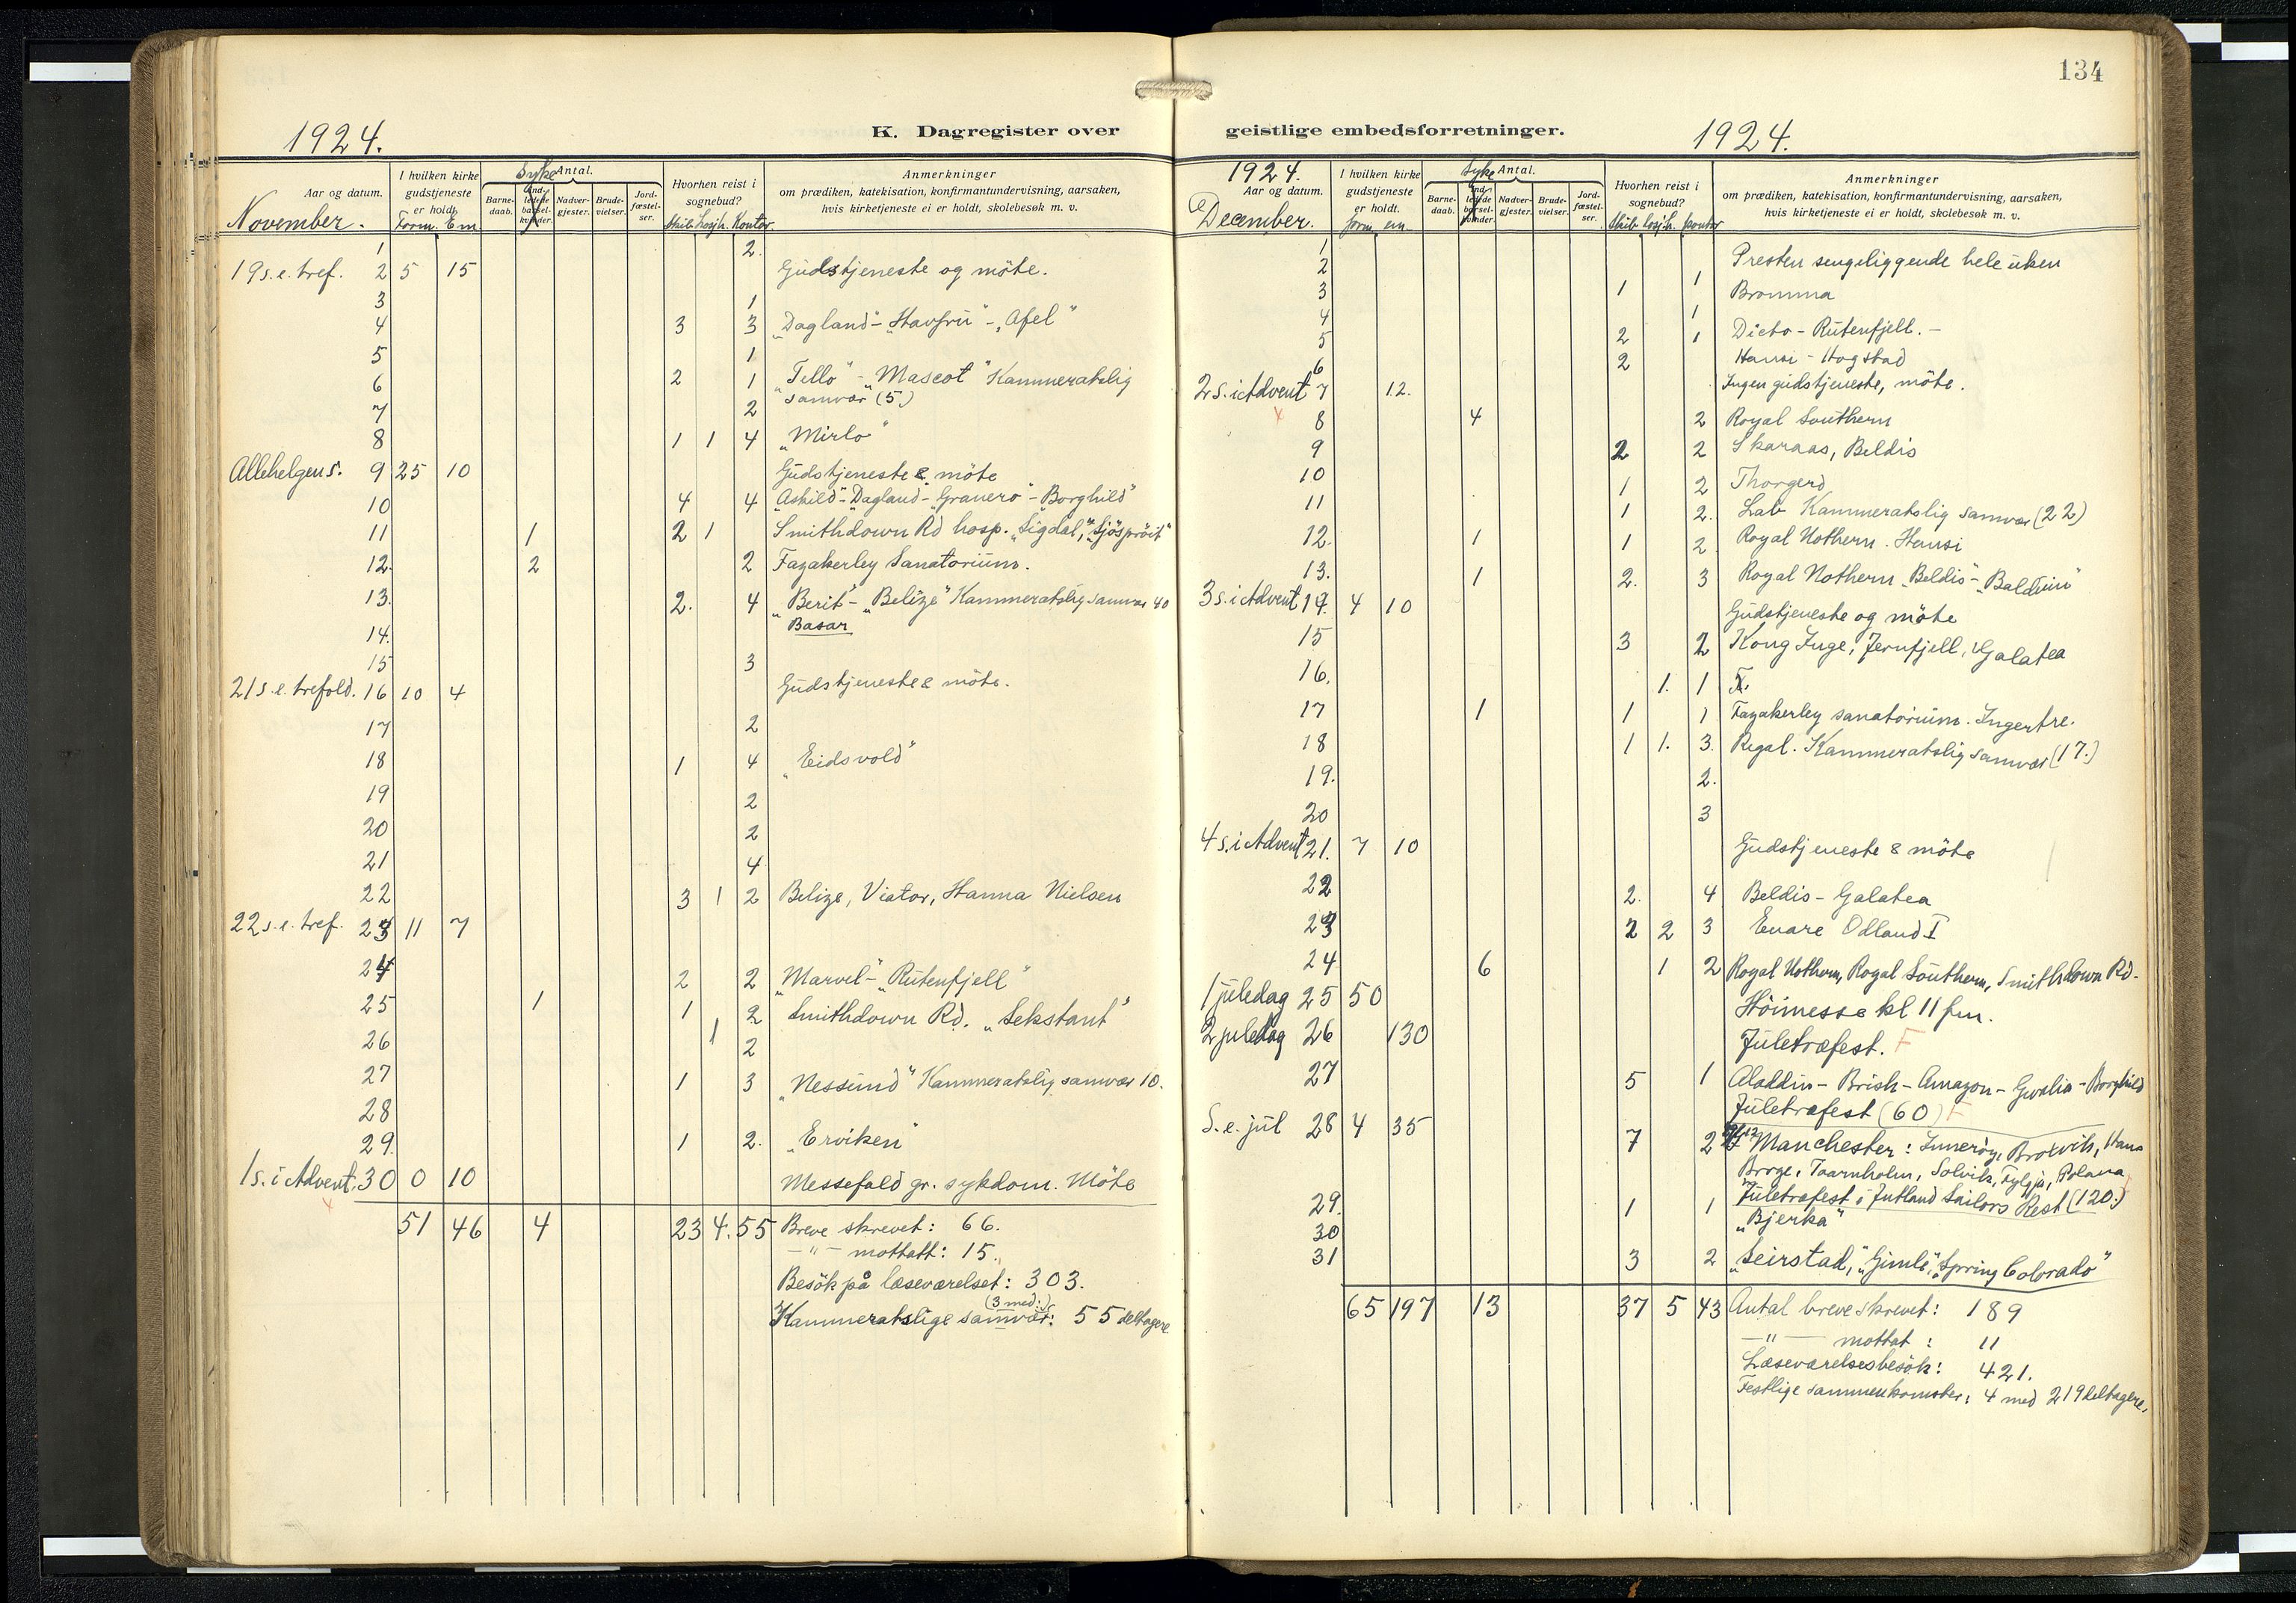 134
1924.
K. Dagregister over
Aar og datum.
I hvilken kirke gudstjeneste er holdt.
Syke Antal.
Barne-daab.
Ind-ledede barsel-kvinder.
Nadver-gjester.
Brude-vielser.
Jord-fæstel-ser.
Hvorhen reist i sognebud?
Anmerkninger
om prædiken, katekisation, konfirmantundervisning, aarsaken, hvis kirketjeneste ei er holdt, skolebesøk m. v.
November. Form. Em Skib Losjh. Kontor
1 2.
19 s.e. tref. 2 5 15 Gudstjeneste og möte.
3 1
4 3 3 „Dagland" - „Havfru" - „Afel"
5 1
6 2 1 „Tello" - „Mascot" Kammeratslig
samvær (5)
7 2
8 1 1 4 „Mirlo"
Allehelgens. 9 25 10 Gudstjeneste & möte
10 4 4 „Askild" - „Dagland - „Granero" - „Borghild"
11 1 2 1 Smithdown Rd hosp. „Sigdal," „Sjöspröit"
12. 2 2 Fazakerley Sanatorium.
13. 2. 4 „Berit" - „Belize" Kammeratslig samvær 40
Basar
14.
15 3
21 s.e. trefold. 16 10 4 Gudstjeneste & möte.
17 2
18 1 4 „Eidsvold"
19 2
20 2
21 4
22 3 1 2 Belize, Viator, Hanna Nielsen
22 s.e. tref. 23 11 7
24 2 2 „Marvel" - „Rutenfjell"
25 1 1 2 Smithdown Rd. „Sekstant"
26 1 2
27 1 3 „Nessund" Kammeratslig samvær 10.
28
29. 1 2. „Erviken"
1 s. i Advent. 30 0 10 Messefald gr. sykdom. Möte
51 46 4 23 4. 55 Breve skrevet: 66.
— " — mottatt: 15.
Besök på læseværelset: 303.
(3 med:)
Kammeratslige samvær: 55 deltagere
geistlige embedsforretninger.
1924.
1924.
Aar og datum.
I hvilken kirke gudstjeneste er holdt.
Syke Antal.
Barne-daab.
Ind-ledede barsel-kvinder.
Nadver-gjester.
Brude-vielser.
Jord-fæstel-ser.
Hvorhen reist i sognebud?
Anmerkninger
om prædiken, katekisation, konfirmantundervisning, aarsaken, hvis kirketjeneste ei er holdt, skolebesøk m. v.
December. form. em. Skib Losjh. kontor
1 Presten sengeliggende hele uken
2 1
3 1 Bromma
4 1
5 2 1 Dicto - Rutenfjell. -
6 2 Hansi - Hogstad
2 s. i Advent 7 12. Ingen gudstjeneste, möte.
8 4 2 Royal Southern
9 2 2 Skaraas, Beldis
10 1 2 Thorgerd
11 1 2. Lab Kammeratslig samvær (22)
12. 1 1 2 Royal Nothern. Hansi
13. 1 2. 3 Royal Nothern „Beldis" - „Balduin"
3 s. i Advent 14. 4 10 Gudstjeneste og möte
15 3 2 Kong Inge, Jernfjell, Galatea
16. 1. 1
17 1 1 1 Fazakerley sanatorium. Ingertre.
18 1 1. 3. Regal. Kammeratslig samvær (17.)
19. 2.
20 3
4 s. i Advent 21. 7 10 Gudstjeneste & möte
22 2. 4 Beldis - Galatea
23 2 2 3 Enare Odland I
24 6 1 2 Royal Nothern, Royal Southern, Smithdown Rd.
1 juledag 25 50 Höimesse kl 11 fm.
2 juledag 26 130 Juletræfest. F
27 5 1 Aladdin - Brisk - Amazon - Gwalia - Borghild
Juletræfest (60) F
S. e. jul 28 4 35 7 2 Manchester: Inneröy, Broxvik, Hans
Broge, Taarnholm, Solvik, Fylgja, Polana
Juletræfest i Jutland Sailors Rest (120.)
29. 1 1 „Bjerka"
30
31 3 2 „Seirstad," „Gimle", „Spring Colorado"
65 197 13 37 5 43 Antal breve skrevet: 189
— " — mottat: 11
Læseværelsesbesök: 421.
Festlige sammenkomster: 4 med 219 deltagere.